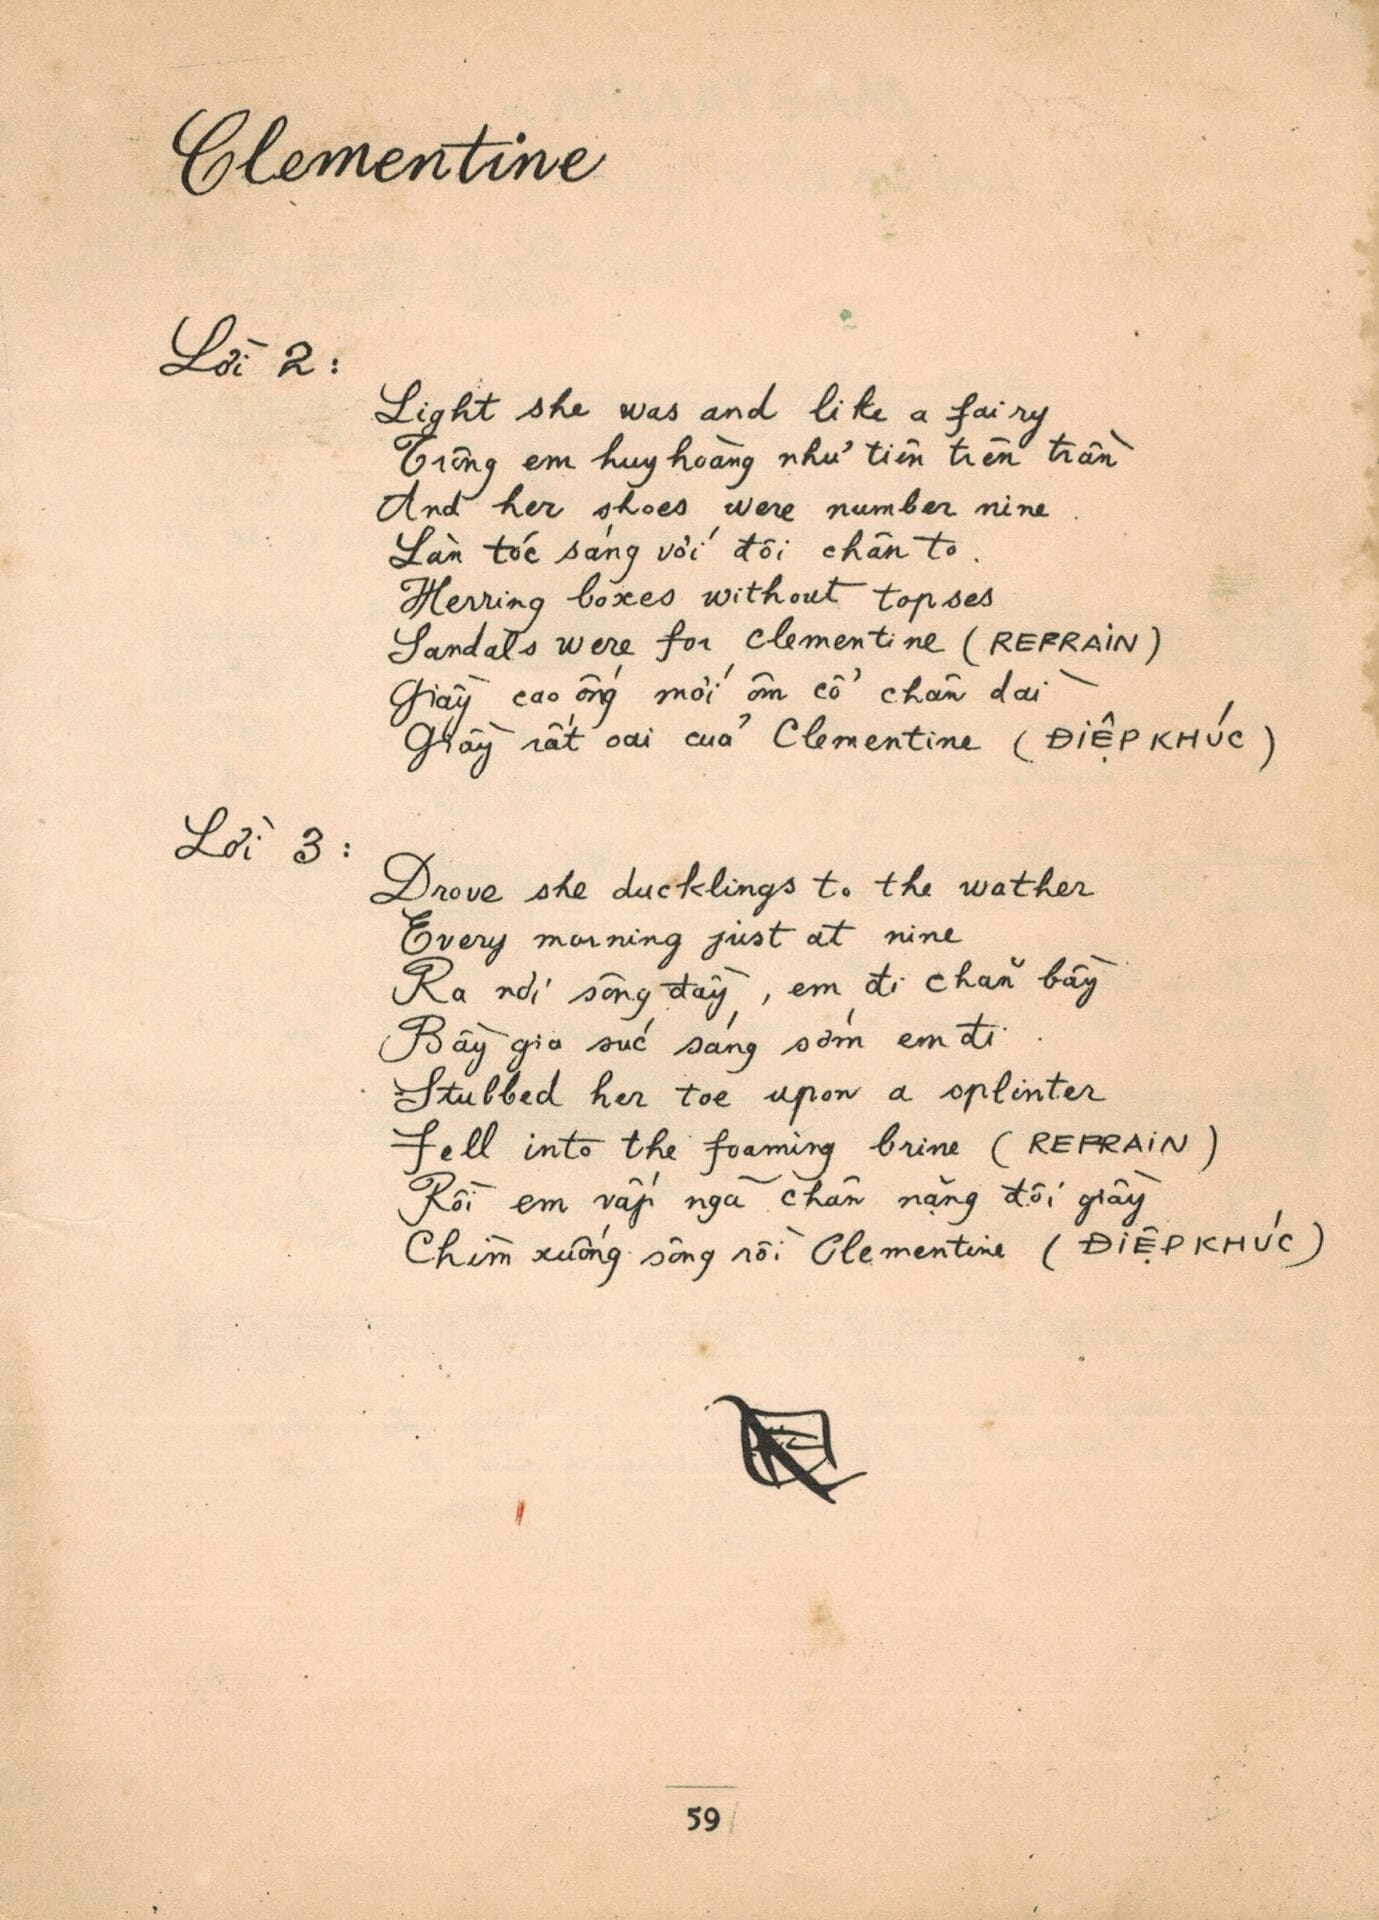 Clementine
Lời 2 :
Light she was and like a fairy
Trông em huy hoàng như tiên trên trần
And her shoes were number nine
Làn tóc sáng với đôi chân to.
Herring boxes without topses
Sandals were for clementine ( REFRAIN )
Giầy cao ống mới ôm cổ chân dài
Giầy rất oai của Clementine ( ĐIỆP KHÚC )
Lời 3 :
Drove she ducklings to the wather
Every morning just at nine
Ra nơi sông đầy, em đi chăn bầy
Bầy gia súc sáng sớm em đi.
Stubbed her toe upon a splinter
Fell into the foaming brine ( REFRAIN )
Rồi em vấp ngã chân nặng đôi giầy
Chìm xuống sông rồi Clementine ( ĐIỆP KHÚC )
59